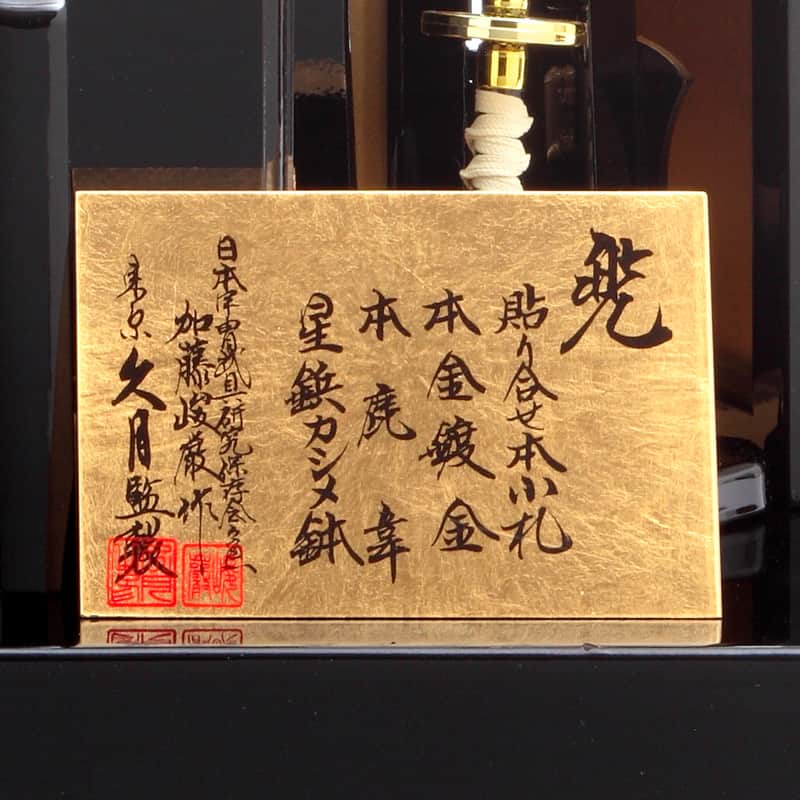 兜
貼り合せ本小札
本金鍍金
本鹿韋
星鋲カシメ鉢
日本甲冑武具研究保存会会員
加藤峻厳作
東京久月監製